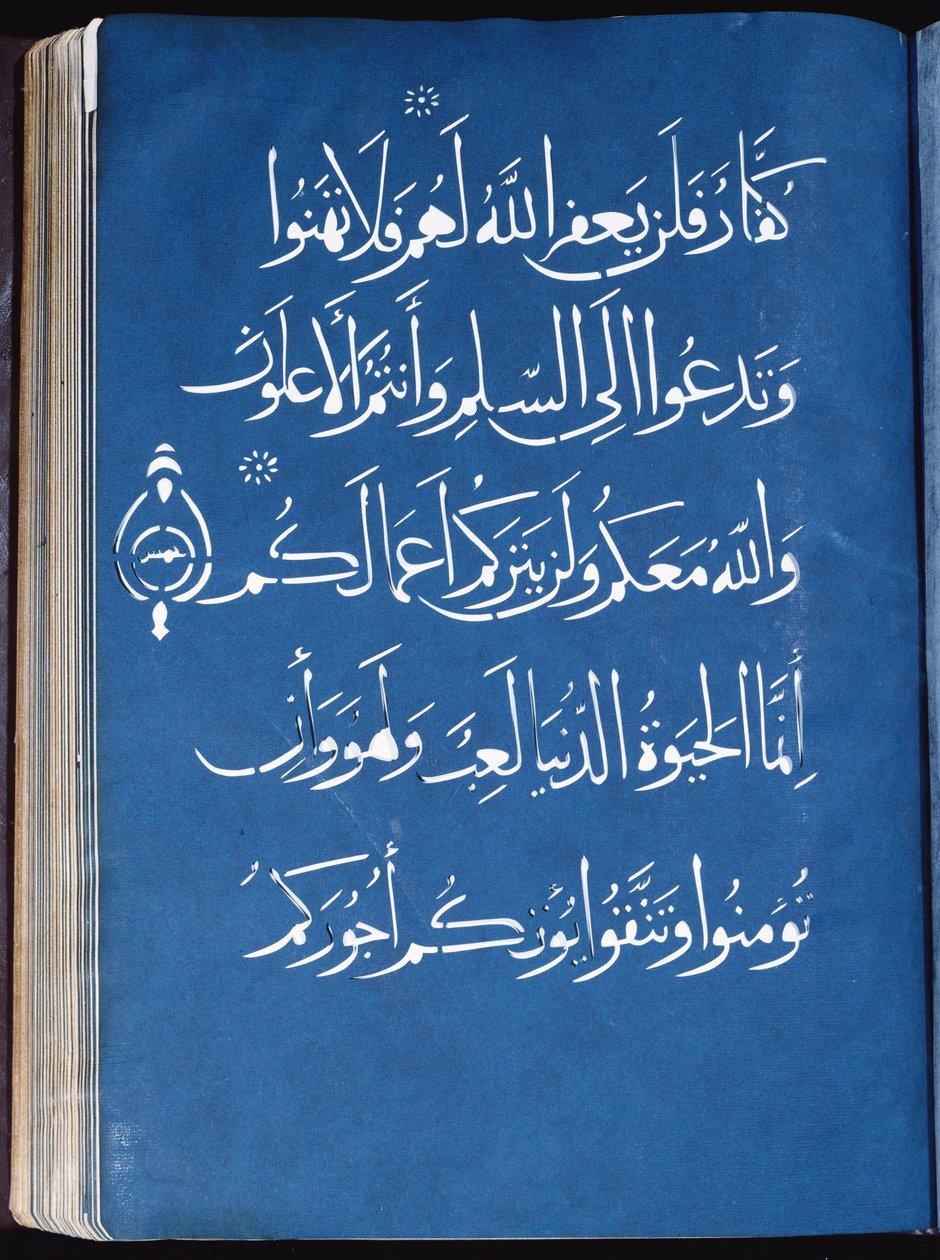 كُفَّارٌ فَلَن يَغفِرَ اللَّهُ لَهُم فَلَا تَهِنُوا
وَتَدعُوا إِلَى السَّلمِ وَأَنتُمُ الأَعلَونَ
وَاللَّهُ مَعَكُم وَلَن يَتِرَكُم أَعمَالَكُم
خمس
إِنَّمَا الحَيَوةُ الدُّنيَا لَعِبٌ وَلَهوٌ وَإِن
تُؤمِنُوا وَتَتَّقُوا يُؤتِكُم أُجُورَكُم